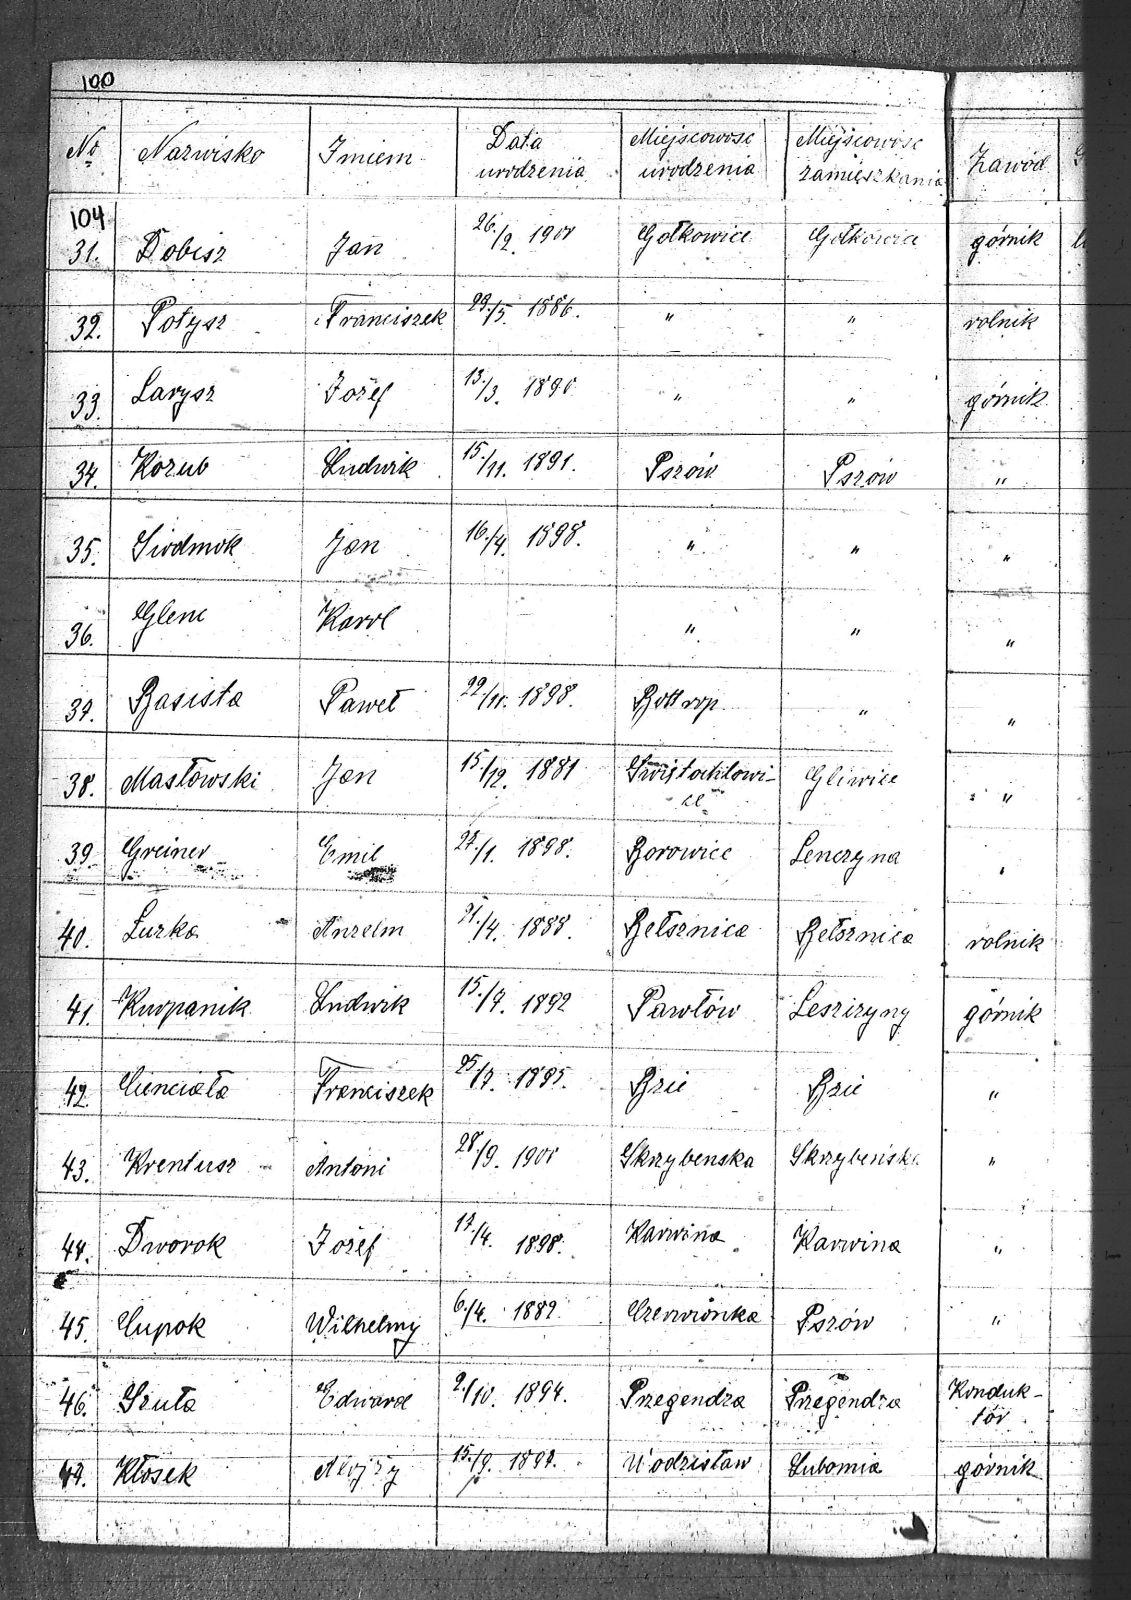 100
No Nazwisko Imiem Data urodzenia Miejscowość urodzenia Miejscowość zamieszkania Zawód
104
31. Dobisz Jan 26./2. 1901 Gołkowice Gołkowice górnik
32. Potysz Franciszek 29./5. 1886. " " rolnik
33. Larysz Jozef 13./3. 1890 " " górnik
34. Kozub Ludwik 15./11. 1891. Pszów Pszów "
35. Siodmok Jan 16./4. 1898. " " "
36. Glenc Karol " " "
37. Basista Paweł 22./11. 1898. Bottrop " "
38. Masłowski Jan 15./12. 1881 Świętochłowi-
ce Gliwice "
39. Greiner Emil 1898. Borowice Lenczyna "
40. Lurka Anzelm 21./4. 1888. Bełsznica Bełsznica rolnik
41. Kuropanik Ludwik 15./7. 1892 Pawłów Leszczyny górnik
42. Cienciała Franciszek 25./7. 1895. Bzie Bzie "
43. Krentusz Antoni 28./9. 1901 Skrzybenska Skrzybeńska "
44. Dworok Jozef 17./4. 1898. Karwina Karwina "
45. Cupok Wilhelmy 6./4. 1889. Czerwionka Pszów "
46. Szuła Edward 2./10. 1894. Przegendza Przegendza Konduk-
tor
47. Kłosek Alojzy 15./9. Wodzisław Lubomia górnik